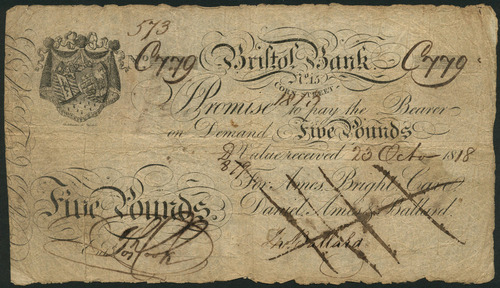 573
C779 Bristol Bank C779
No. 15
CORN STREET
I Promise to pay the Bearer
on Demand Five Pounds
Value received 23 Octo 1818
For Ames, Bright, Cave,
Daniel, Ames & Ballard
Five Pounds.
Entd Jos Cook
Jn Ballard